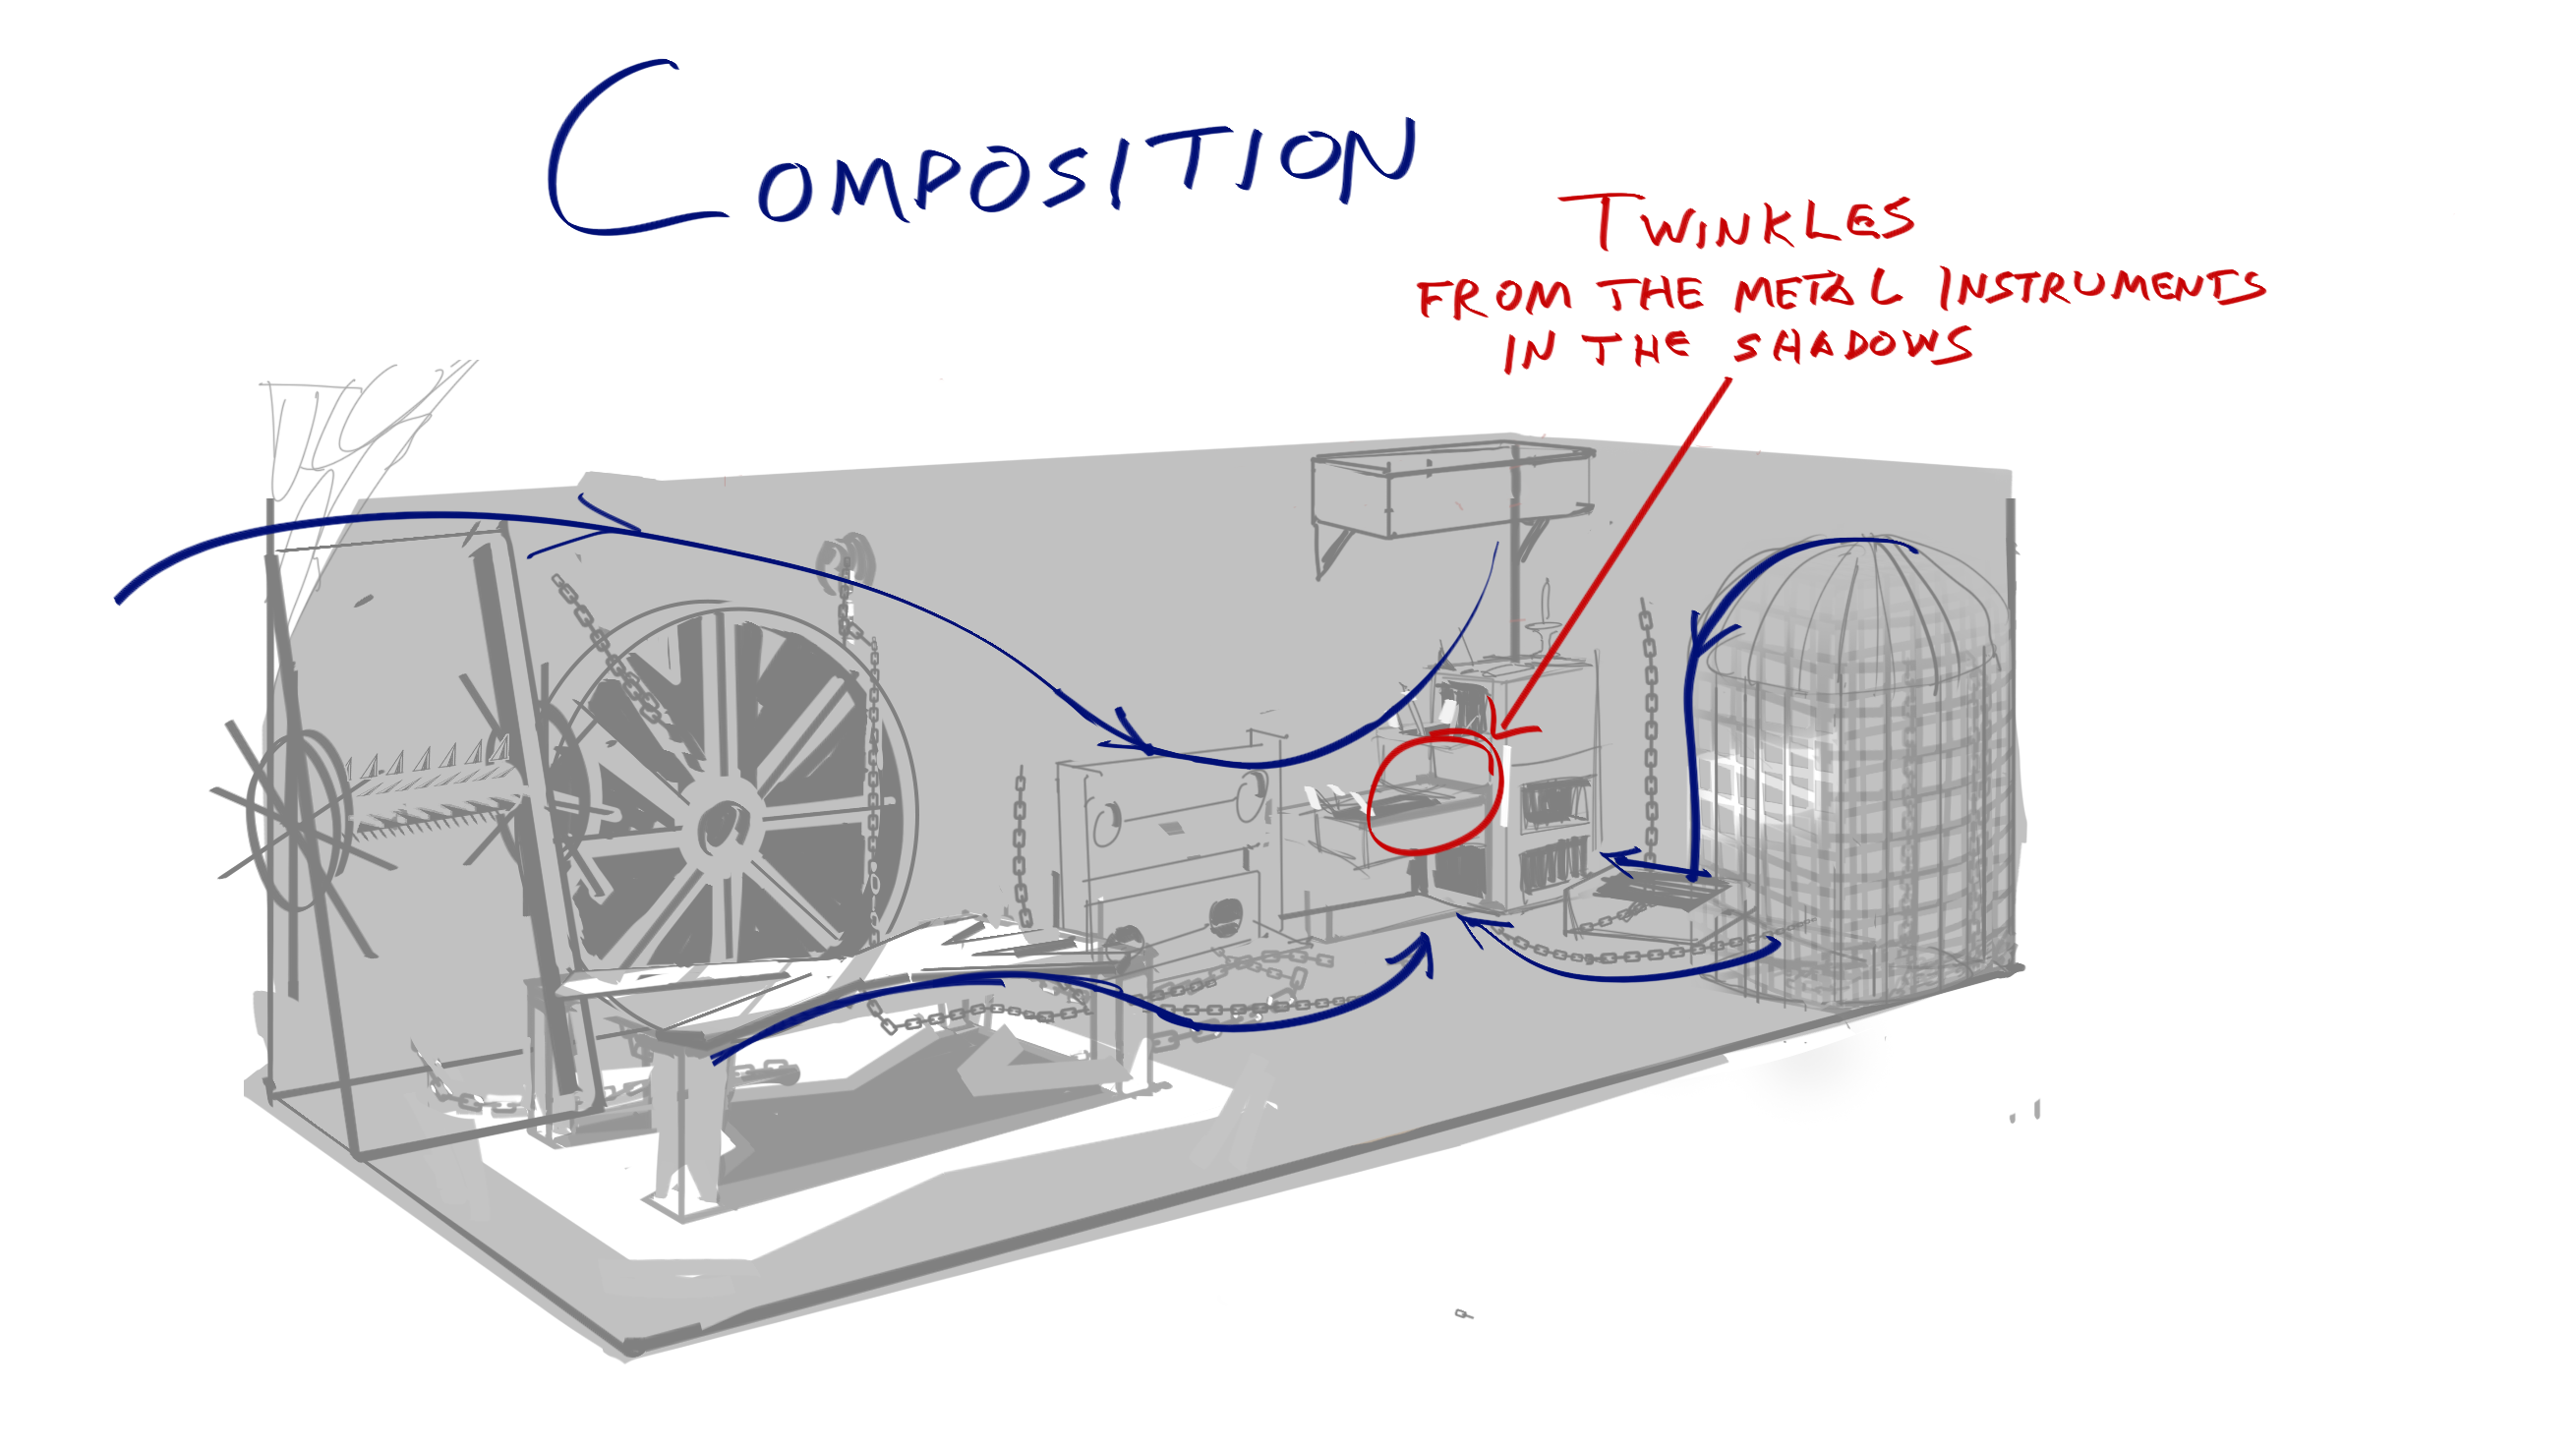 COMPOSITION
TWINKLES
FROM THE METAL INSTRUMENTS
IN THE SHADOWS